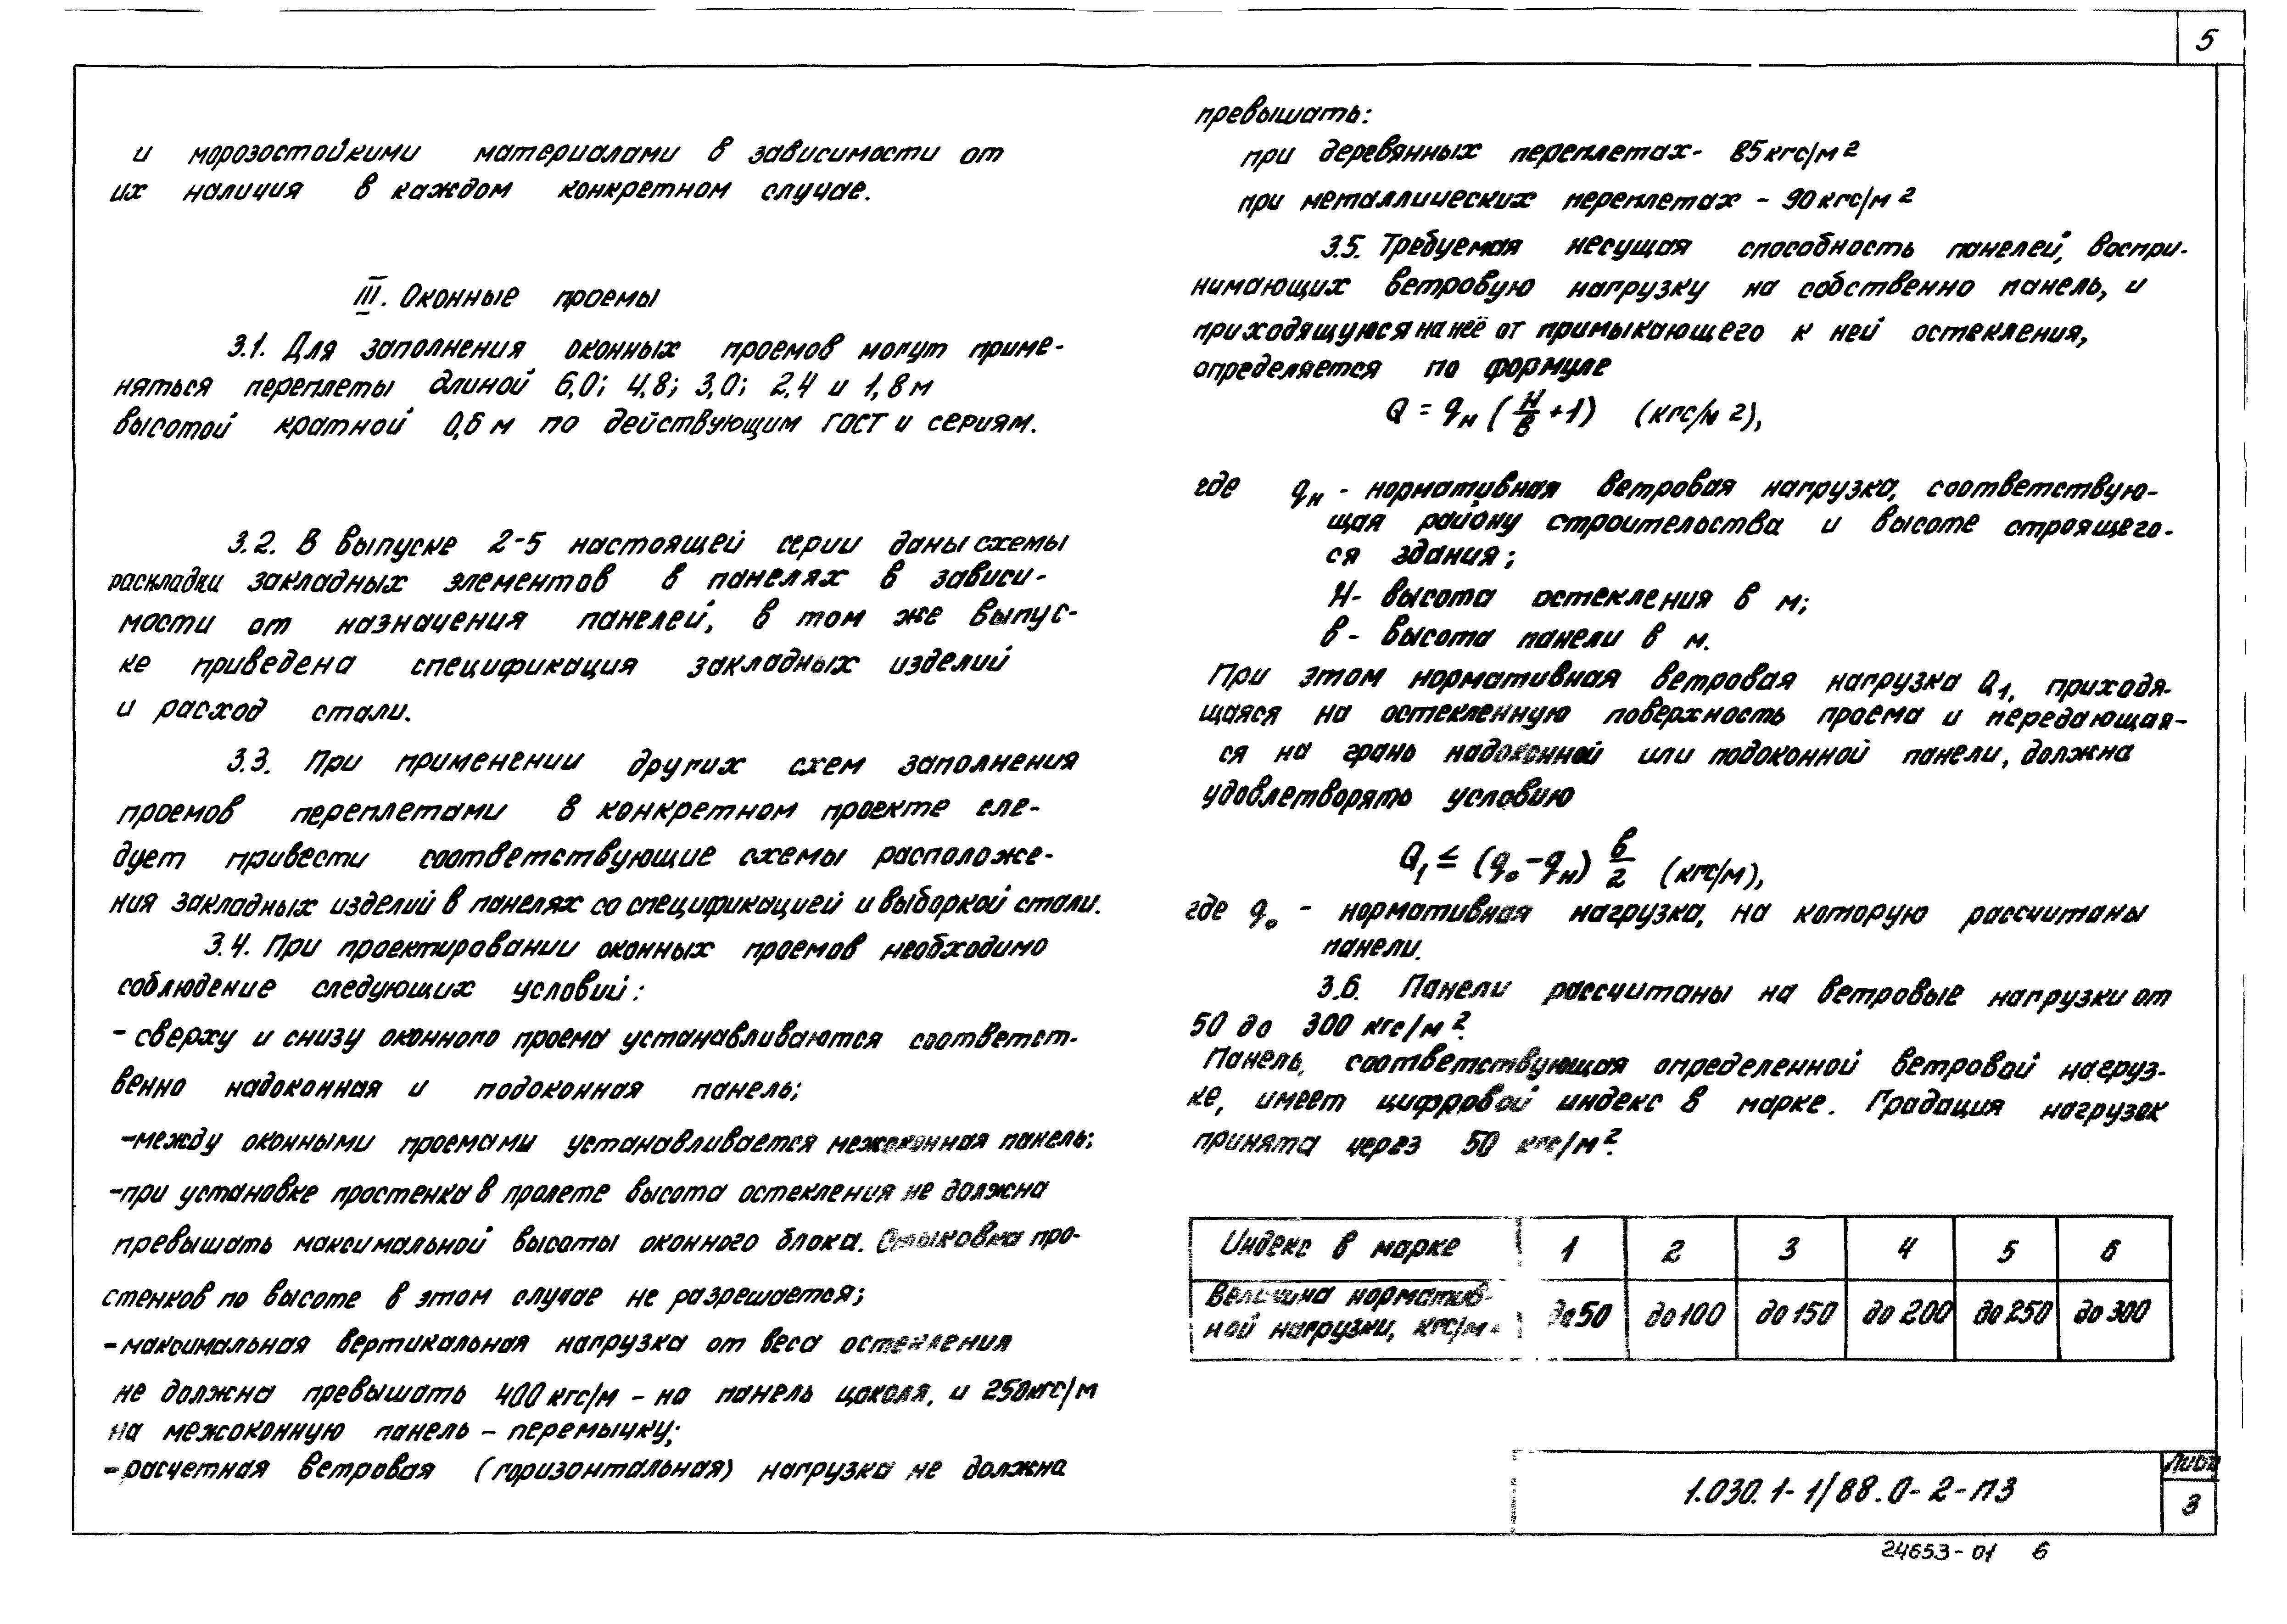 5
и морозостойкими материалами в зависимости от
их наличия в каждом конкретном случае.
III. Оконные проемы
3.1. Для заполнения оконных проемов могут приме-
няться переплеты длиной 6,0; 4,8; 3,0; 2,4 и 1,8 м
высотой кратной 0,6 м по действующим ГОСТ и сериям.
3.2. В выпуске 2-5 настоящей серии даны схемы
раскладки закладных элементов в панелях в зависи-
мости от назначения панелей, в том же выпус-
ке приведена спецификация закладных изделий
и расход стали.
3.3. При применении других схем заполнения
проемов переплетами в конкретном проекте сле-
дует привести соответствующие схемы расположе-
ния закладных изделий в панелях со спецификацией и выборкой стали.
3.4. При проектировании оконных проемов необходимо
соблюдение следующих условий:
- сверху и снизу оконного проема устанавливаются соответст-
венно надоконная и подоконная панель;
- между оконными проемами устанавливается межоконная панель;
- при установке простенка в пролете высота остекления не должна
превышать максимальной высоты оконного блока. Стыковка про-
стенков по высоте в этом случае не разрешается;
- максимальная вертикальная нагрузка от веса остекления
не должна превышать 400 кгс/м - на панель цоколя, и 250 кгс/м
на межоконную панель - перемычку;
- расчетная ветровая (горизонтальная) нагрузка не должна
превышать:
при деревянных переплетах - 85 кгс/м2
при металлических переплетах - 90 кгс/м2
3.5. Требуемая несущая способность панелей, воспри-
нимающих ветровую нагрузку на собственно панель, и
приходящуюся на неё от примыкающего к ней остекления,
определяется по формуле
Q = qн (H/В + 1) (кгс/м2),
где qн - нормативная ветровая нагрузка, соответствую-
щая району строительства и высоте строящего-
ся здания;
H - высота остекления в м;
в - высота панели в м.
При этом нормативная ветровая нагрузка Q1, приходя-
щаяся на остекленную поверхность проема и передающая-
ся на грань надоконной или подоконной панели, должна
удовлетворять условию
Q1 ≤ (q0 - qн) в/2 (кгс/м),
где q0 - нормативная нагрузка, на которую рассчитаны
панели.
3.6. Панели рассчитаны на ветровые нагрузки от
50 до 300 кгс/м2.
Панель, соответствующая определенной ветровой нагруз-
ке, имеет цифровой индекс в марке. Градация нагрузок
принята через 50 кгс/м2.
Индекс в марке 1 2 3 4 5 6
Величина норматив- до 50 до 100 до 150 до 200 до 250 до 300
ной нагрузки, кгс/м
1.030.1-1/88.0-2-ПЗ
Лист
3
24653-01 6